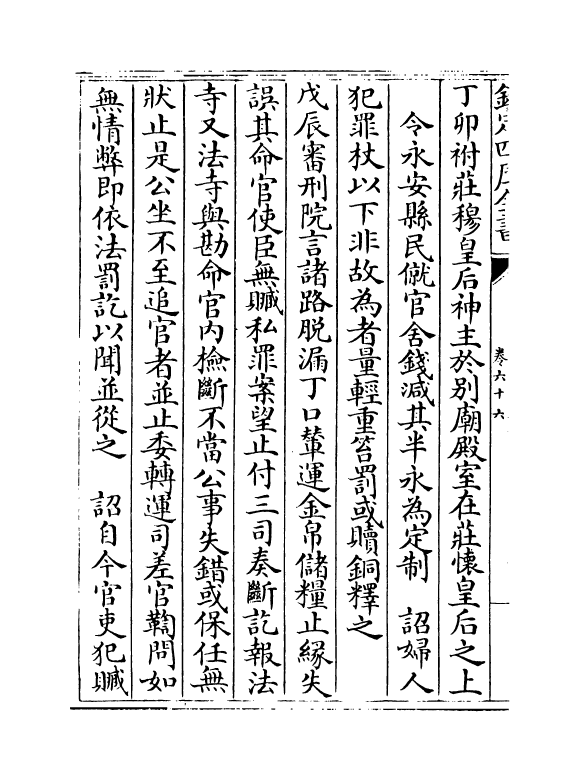 欽定四庫全書
卷六十六
丁卯祔莊穆皇后神主於別廟殿室在莊懷皇后之上
令永安縣民僦官舍錢減其半永為定制　詔婦人
犯罪杖以下非故為者量輕重笞罰或贖銅釋之
戊辰審刑院言諸路脱漏丁口輦運金帛儲糧止緣失
誤其命官使臣無贓私罪案望止付三司奏斷訖報法
寺又法寺與勘命官内檢斷不當公事失錯或保任無
狀止是公坐不至追官者並止委轉運司差官鞫問如
無情弊即依法罰訖以聞並從之　詔自今官吏犯贓